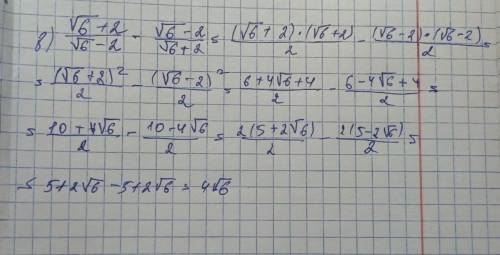 в) (√6+2)/(√6-2) - (√6-2)/(√6+2) = ((√6+2)·(√6+2))/2 - ((√6-2)·(√6-2))/2 =
= (√6+2)²/2 - (√6-2)²/2 = (6+4√6+4)/2 - (6-4√6+4)/2 =
= (10+4√6)/2 - (10-4√6)/2 = 2(5+2√6)/2 - 2(5-2√6)/2 =
= 5+2√6-5+2√6 = 4√6